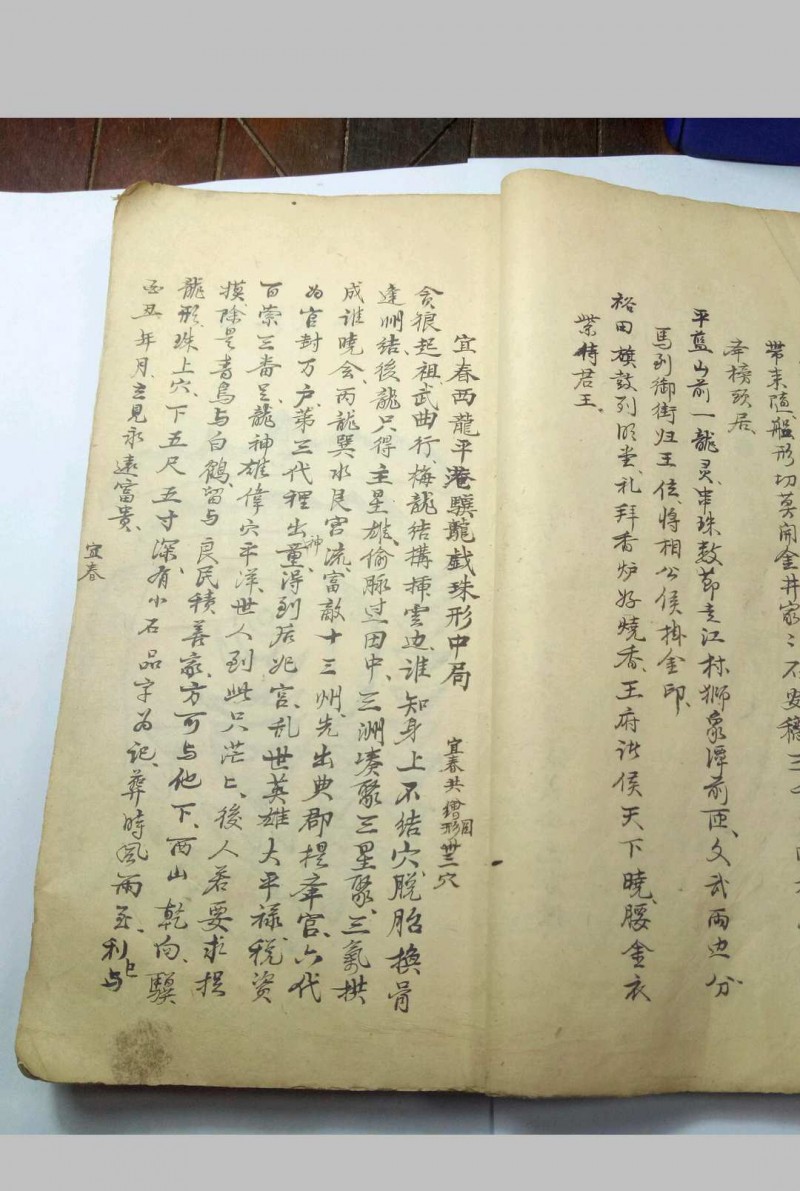 帶来随艦形切莫開金井家〻不安穩三
平藍山前一龍灵、串珠数節走江村獅象潭前匝、文武两边分
馬到御街归王位、將相公侯掛金印、
裕田旗鼓列明堂、礼拜香炉好燒香、王府諸侯天下曉、腰金衣
紫侍君王、
宜春西龍平港驥龍戲珠形中局
宜春共增图形卅二穴
贪狼起祖、武曲行、梅龍结搆揷雲边、谁知身上不结穴、脱胎換骨
逢州结、後龍只得主星雄、偷脉过田中、三洲湊聚三星聚、三氣拱
成谁曉会、丙龍巽水艮宮流、富敵十三州、先出典郡提举官、六代
为官封万户、第三代裡出神童、得到后妃宮、乱世英雄太平禄、税资
百萦三畨足、龍神雄偉穴平洋、世人到此只茫〻、後人若要求提
摸、除是青鳥与白鶴、留与良民積善家、方可与他下、西山乾向、驥
龍形、珠上穴、下五尺五寸深、有小石品字为记、葬時風雨至、利上与
丑年月、立見永遠富贵、
宜春